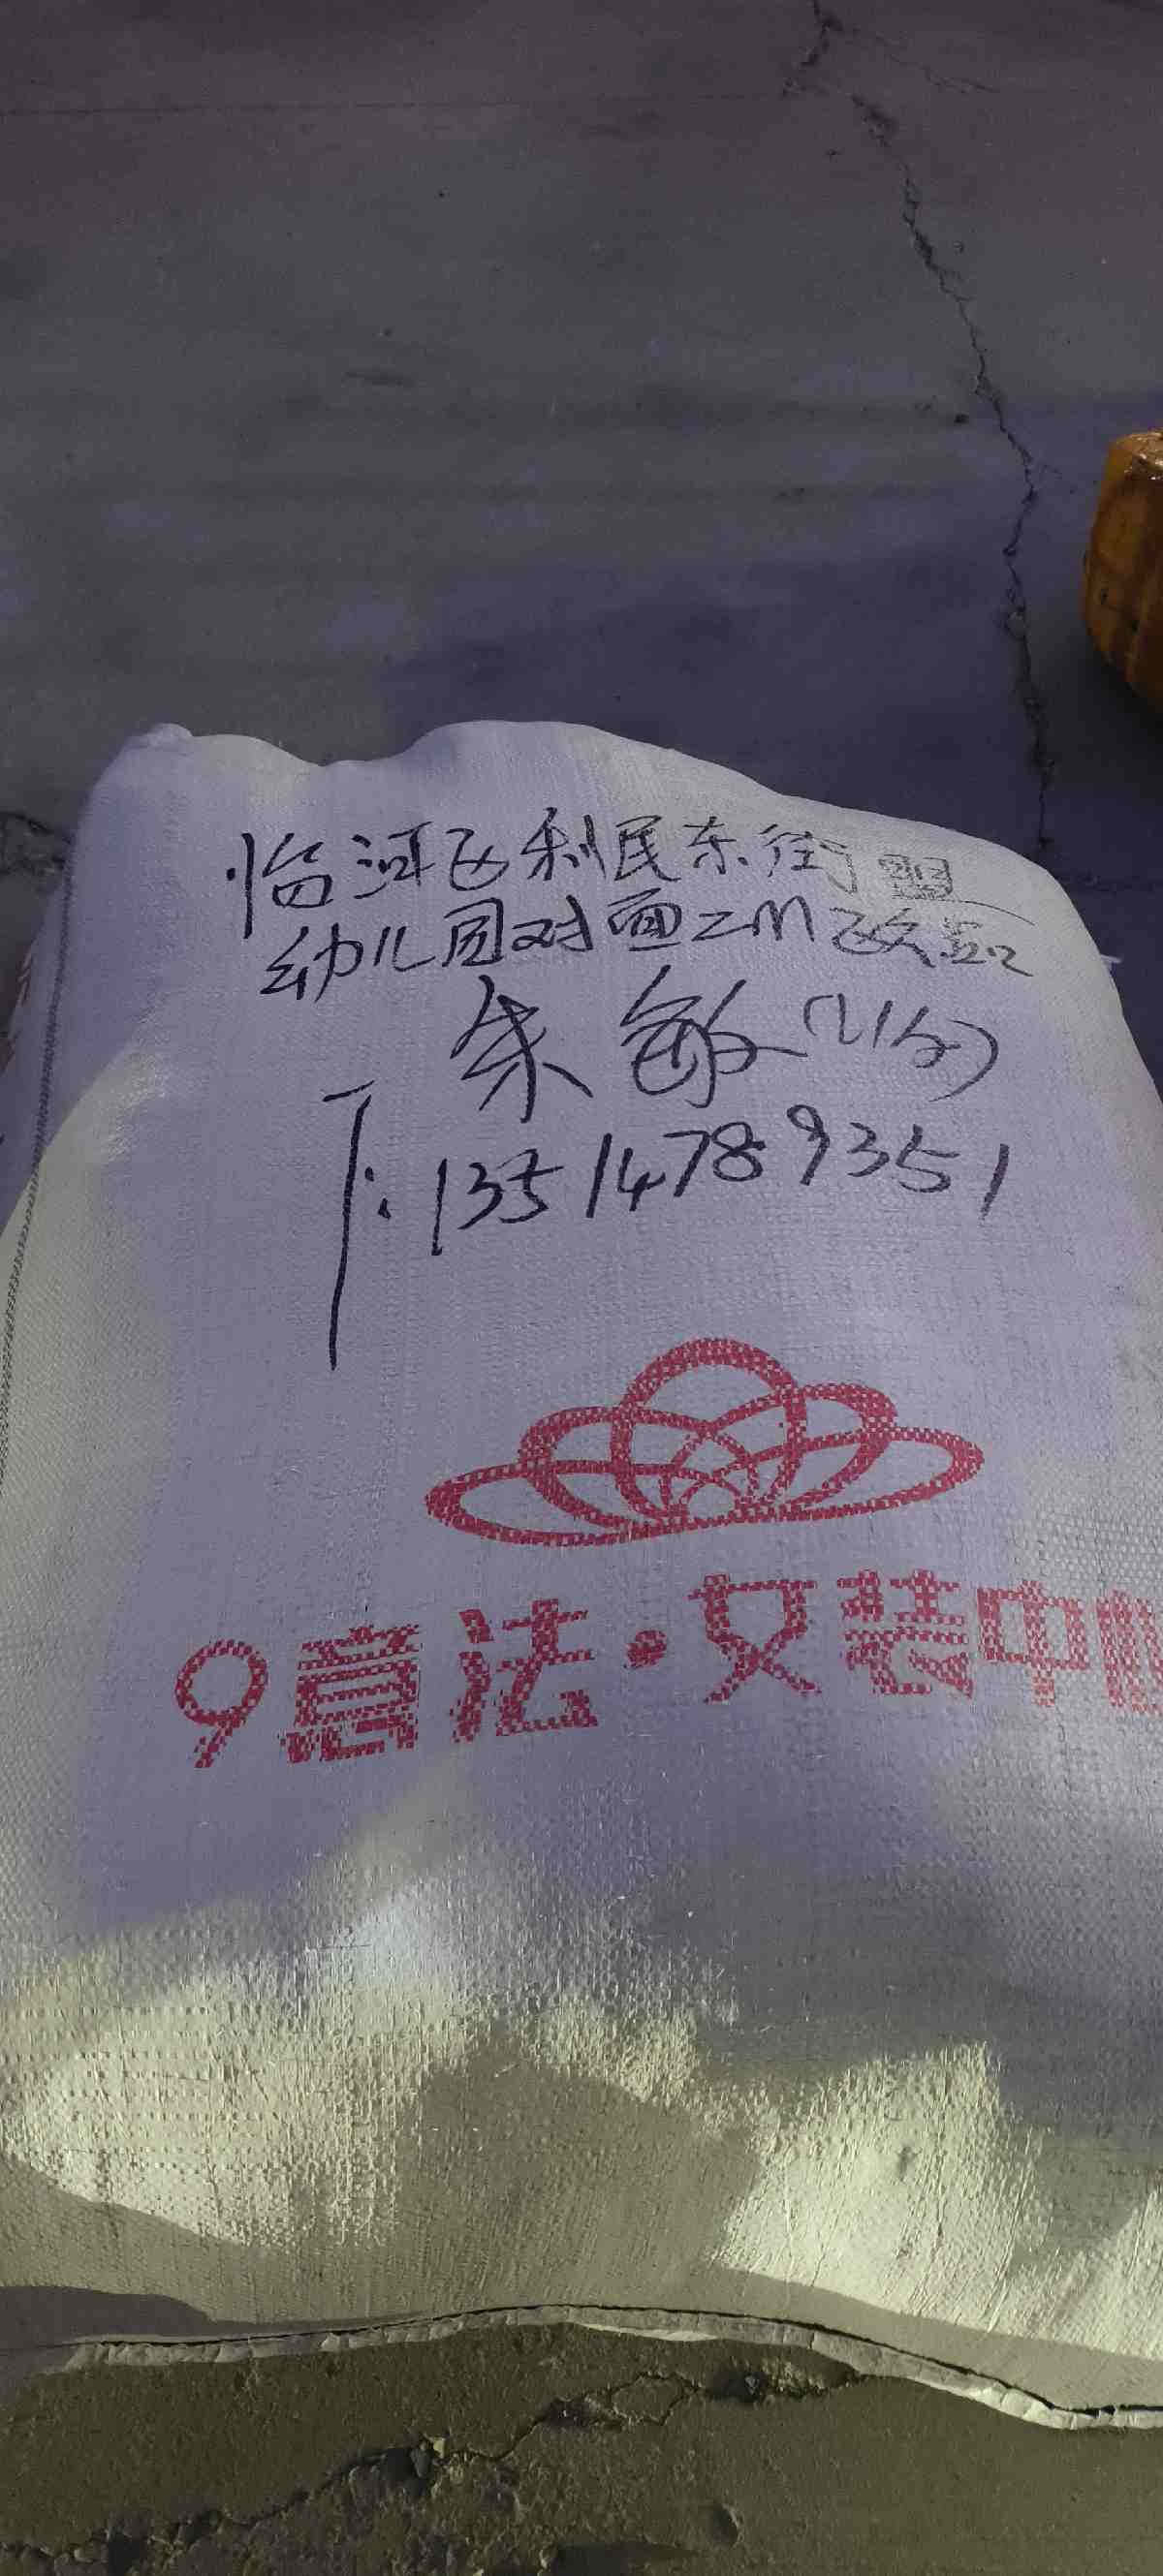 临河区利民东街盟
幼儿园对面ZM改
朱敏(21分)
T:13514789351
9意法·女装中